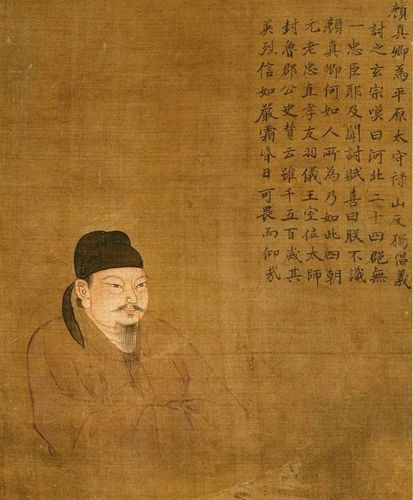 顔真卿為平原太守禄山反獨倡義
討之玄宗嘆曰河北二十四郡無
一忠臣耶及聞討賊喜曰朕不識
顔真卿何如人所為乃如此四朝
元老忠直孝友羽儀王室位太師
封魯郡公史賛云雖千五百歲其
英烈信如嚴霜烈日可畏而仰哉